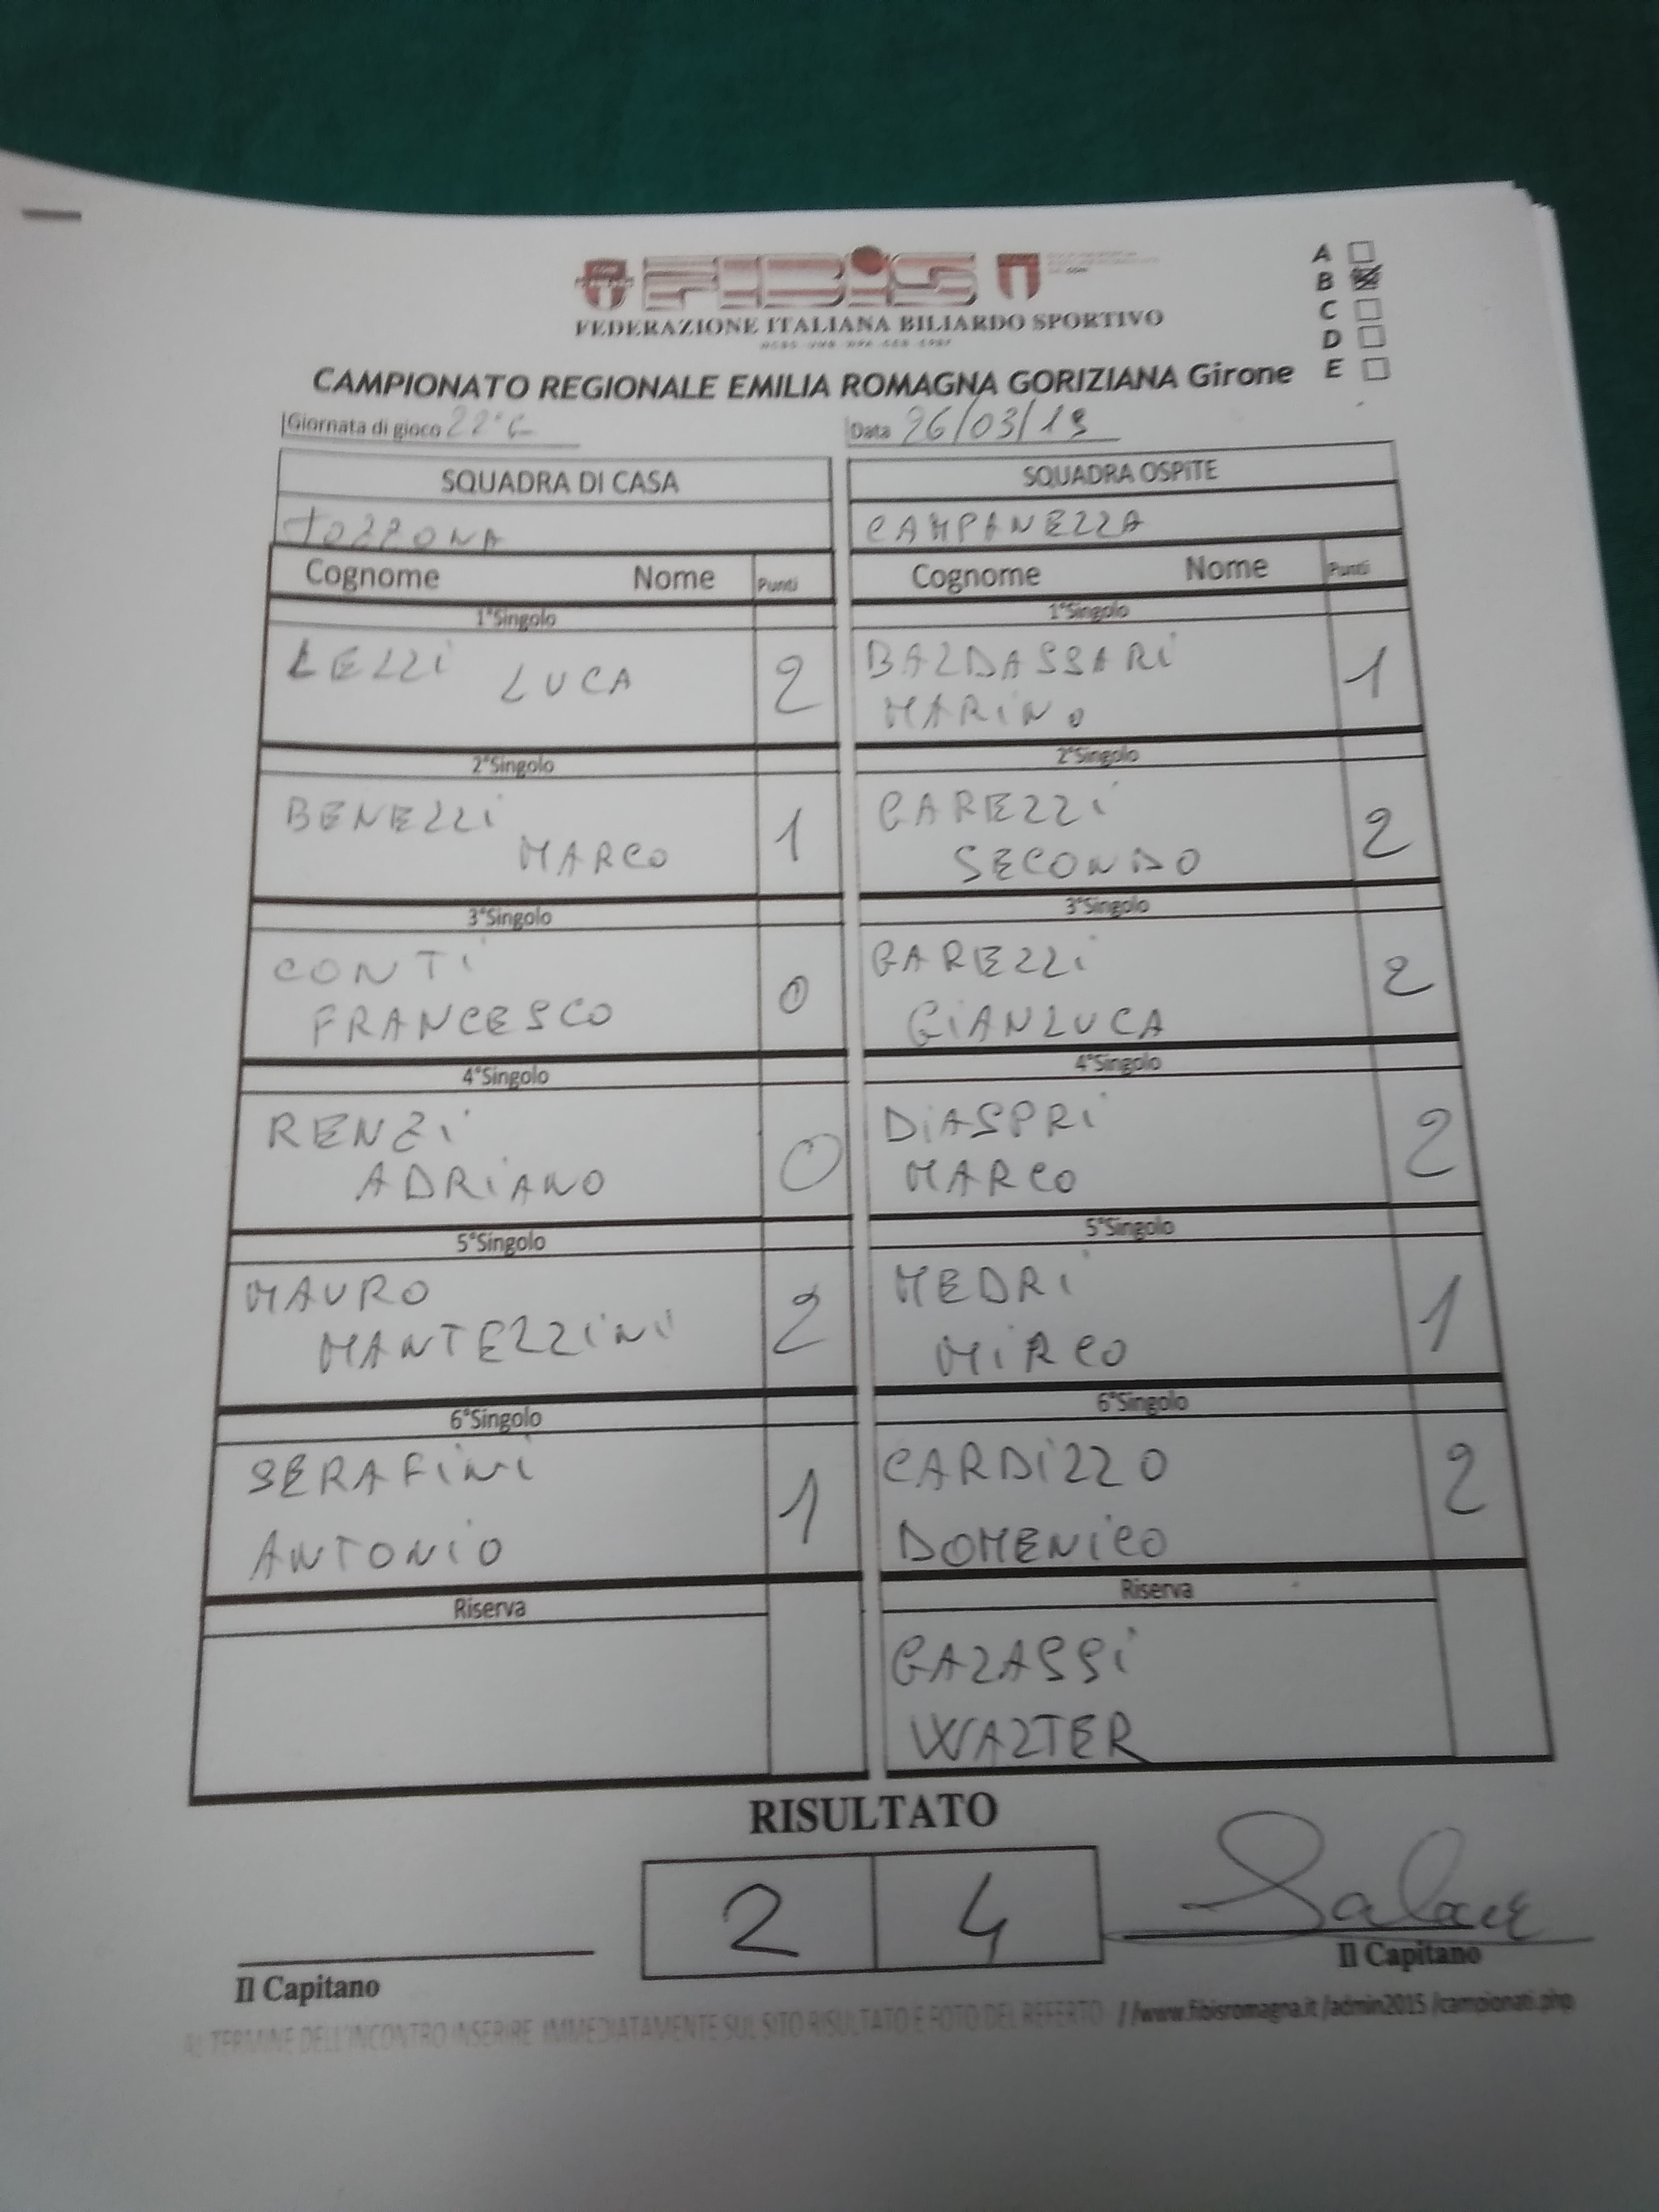 FIBIS
FEDERAZIONE ITALIANA BILIARDO SPORTIVO
A
B
C
D
E
CAMPIONATO REGIONALE EMILIA ROMAGNA GORIZIANA Girone
Giornata di gioco 22°G
Data 26/03/19
SQUADRA DI CASA SQUADRA OSPITE
TOZZONA CAMPANELLA
Cognome Nome Punti Cognome Nome Punti
1°Singolo 1°Singolo
LELLI LUCA 2 BALDASSARI MARINO 1
2°Singolo 2°Singolo
BENELLI MARCO 1 GARELLI SECONDO 2
3°Singolo 3°Singolo
CONTI FRANCESCO 0 GARELLI GIANLUCA 2
4°Singolo 4°Singolo
RENZI ADRIANO 0 DIASPRI MARCO 2
5°Singolo 5°Singolo
MAURO MANTELLINI 2 MEDRI MIRCO 1
6°Singolo 6°Singolo
SERAFINI ANTONIO 1 CARDILLO DOMENICO 2
Riserva Riserva
GALASSI WALTER
RISULTATO
2 4
Il Capitano Il Capitano
AL TERMINE DELL'INCONTRO INSERIRE IMMEDIATAMENTE SUL SITO RISULTATO E FOTO DEL REFERTO //www.fibisromagna.it/admin2015/campionati.php